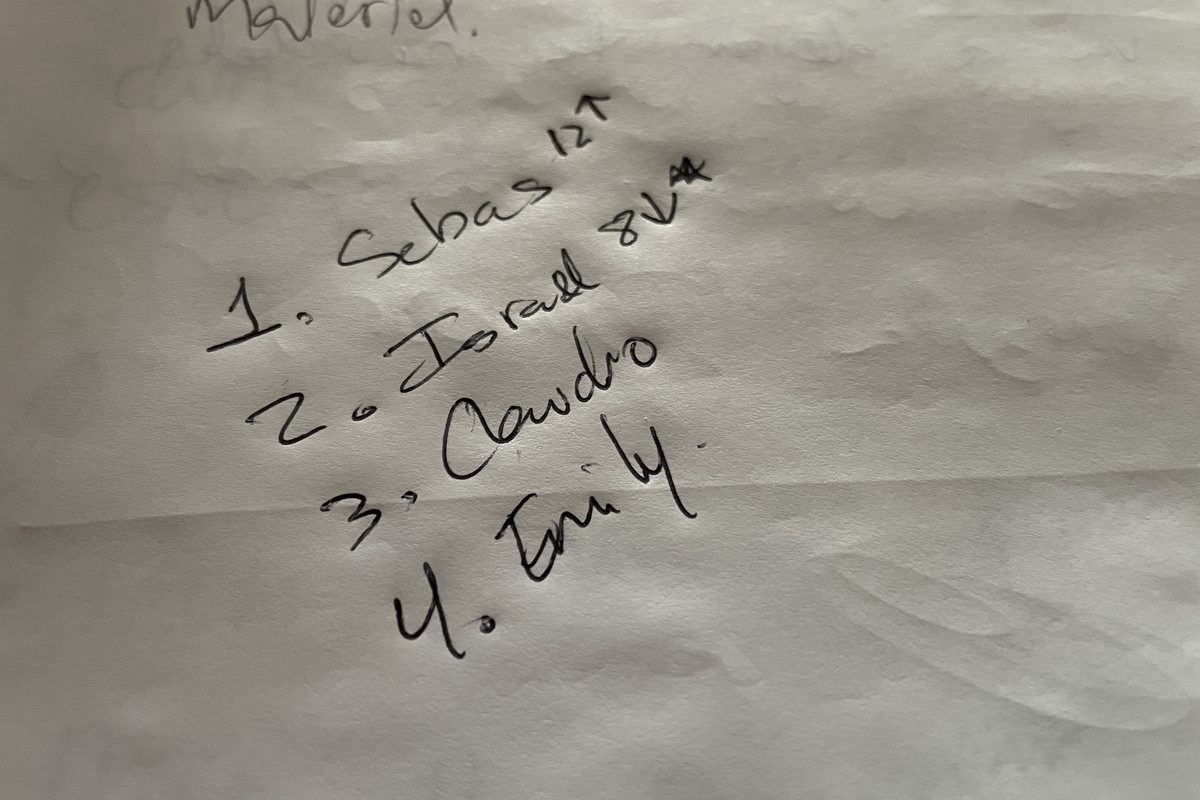 Material.
1. Sebas 12↑
2. Israel 8↓
3. Claudio
4. Emily.